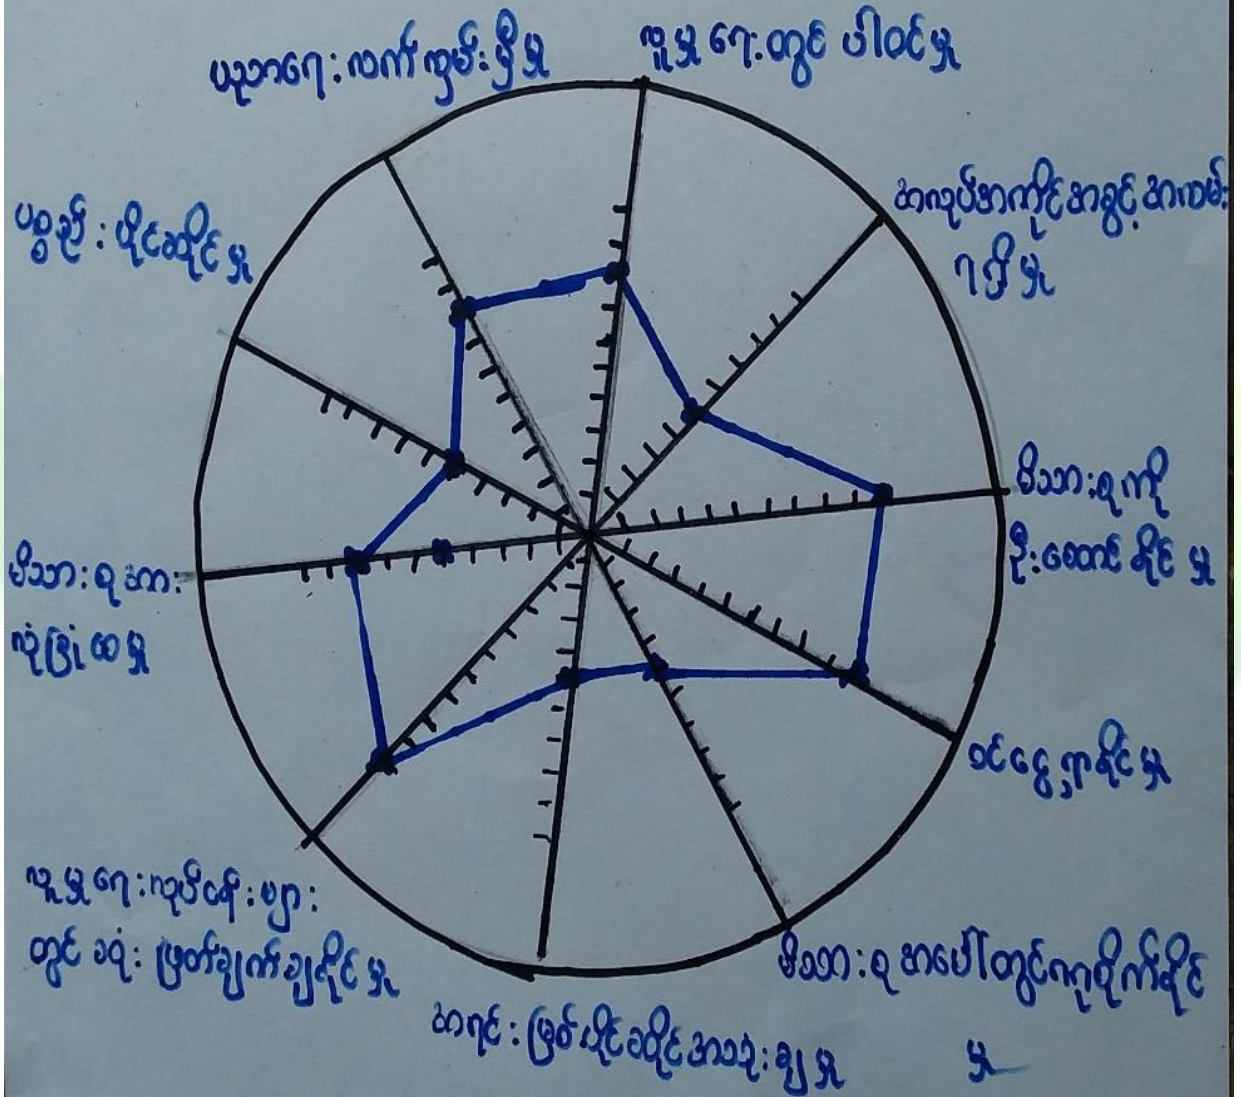 ပညာရေး လက်လှမ်းမှီမှု
လူမှုရေးတွင် ပါဝင်မှု
အလုပ်အကိုင်အခွင့်အလမ်း
ရရှိမှု
မိသားစုကို
ဦးဆောင်နိုင်မှု
ဝင်ငွေရှာနိုင်မှု
မိသားစုအပေါ်တွင်
မှု
အရင်းမြစ်ပိုင်ဆိုင်အသုံးချမှု
လူမှုရေးလုပ်ငန်းများ
တွင် ဆုံးဖြတ်ချက်ချနိုင်မှု
မိသားစုအား
လုံခြုံစေမှု
ပစ္စည်းပိုင်ဆိုင်မှု